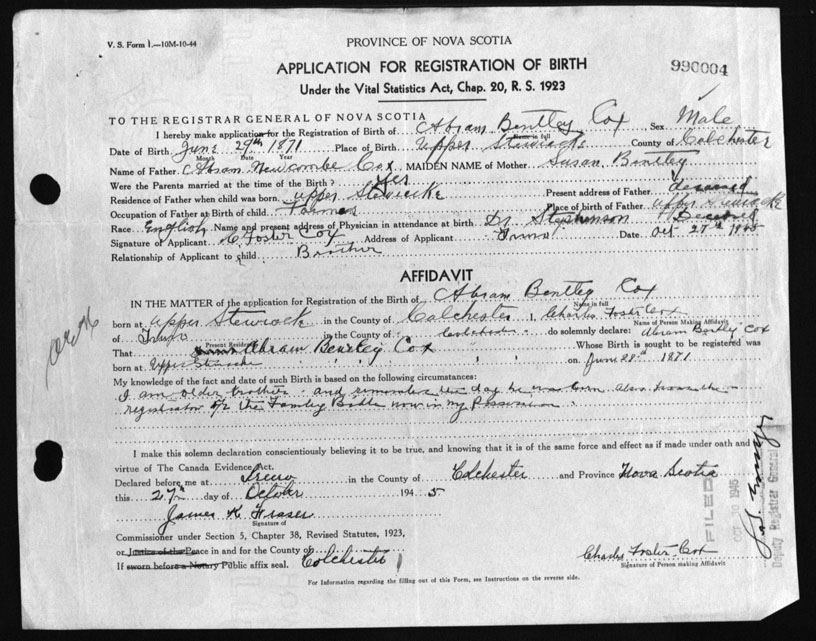 V. S. Form 1.—10M-10-44
PROVINCE OF NOVA SCOTIA
APPLICATION FOR REGISTRATION OF BIRTH
990004
Under the Vital Statistics Act, Chap. 20, R. S. 1923
TO THE REGISTRAR GENERAL OF NOVA SCOTIA
I hereby make application for the Registration of Birth of Abram Bentley Cox Sex Male
Name in full
Date of Birth June 29th 1871 Place of Birth Upper Stewiacke County of Colchester
Month Date Year
Name of Father Abram Newcombe Cox MAIDEN NAME of Mother Susan Bentley
Were the Parents married at the time of the Birth? Yes
Residence of Father when child was born Upper Stewiacke Present address of Father deceased
Occupation of Father at Birth of child Farmer Place of birth of Father Upper Stewiacke
Race English Name and present address of Physician in attendance at birth Dr Stephenson Deceased
Signature of Applicant C. Foster Cox Address of Applicant Truro Date Oct 27th 1945
Relationship of Applicant to child Brother
AFFIDAVIT
IN THE MATTER of the application for Registration of the Birth of Abram Bentley Cox
Name in full
born at Upper Stewiacke in the County of Colchester I, Charles Foster Cox
Name of Person Making Affidavit
of Truro in the County of Colchester do solemnly declare: Abram Bentley Cox
Present Residence
That Abram Bentley Cox Whose Birth is sought to be registered was
born at Upper Stewiacke on June 28th 1871
My knowledge of the fact and date of such Birth is based on the following circumstances:
I am older brother and remember the day he was born also from the
registration in the Family Bible now in my Possession
I make this solemn declaration conscientiously believing it to be true, and knowing that it is of the same force and effect as if made under oath and
virtue of The Canada Evidence Act.
Declared before me at Truro in the County of Colchester and Province Nova Scotia
this 27th day of October 1945
James K. Fraser
Signature of
Commissioner under Section 5, Chapter 38, Revised Statutes, 1923,
or Justice of the Peace in and for the County of
If sworn before a Notary Public affix seal. Colchester
Charles Foster Cox
Signature of Person making Affidavit
For Information regarding the filling out of this Form, see Instructions on the reverse side.
FILED
OCT 30 1945
Deputy Registrar General